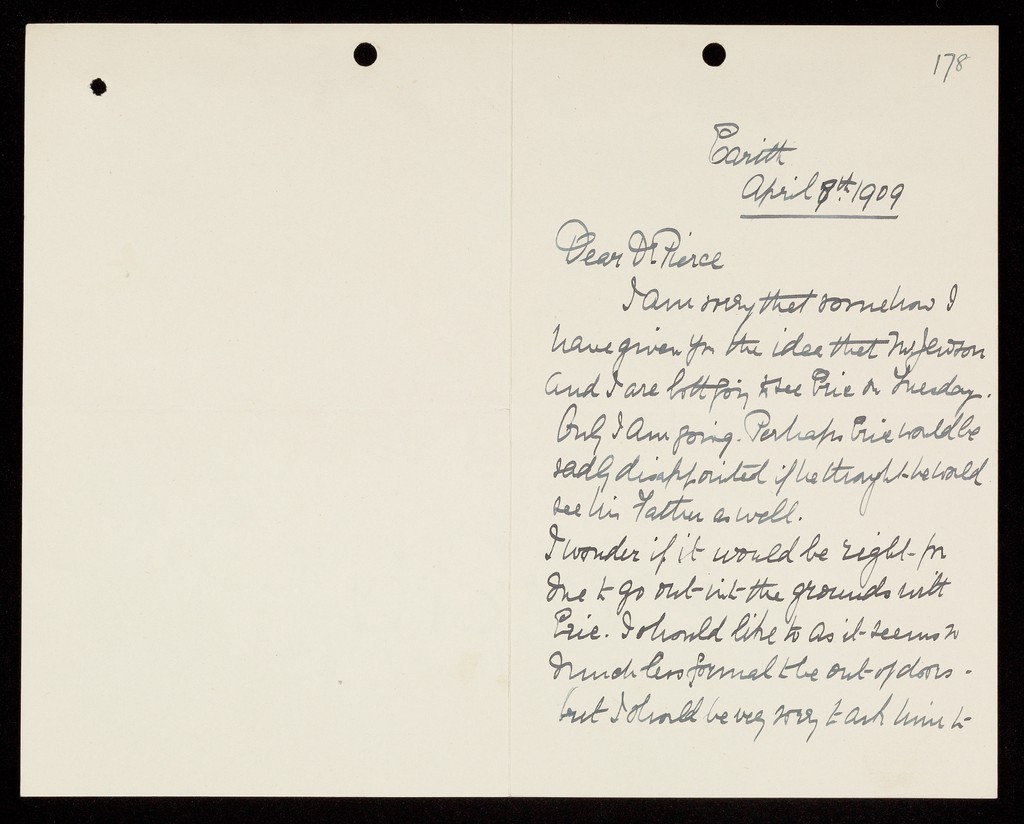 178
Earith
April 8th. 1909
Dear Dr. Pierce
I am sorry that somehow I
have given you the idea that Mr Jewson
and I are both going to see Eric on Tuesday.
Only I am going. Perhaps Eric would be
sadly disappointed if he thought he would
see his Father as well.
I wonder if it would be right for
me to go out into the grounds with
Eric. I should like to as it seems so
much less formal to be out of doors -
but I should be very sorry to ask him to